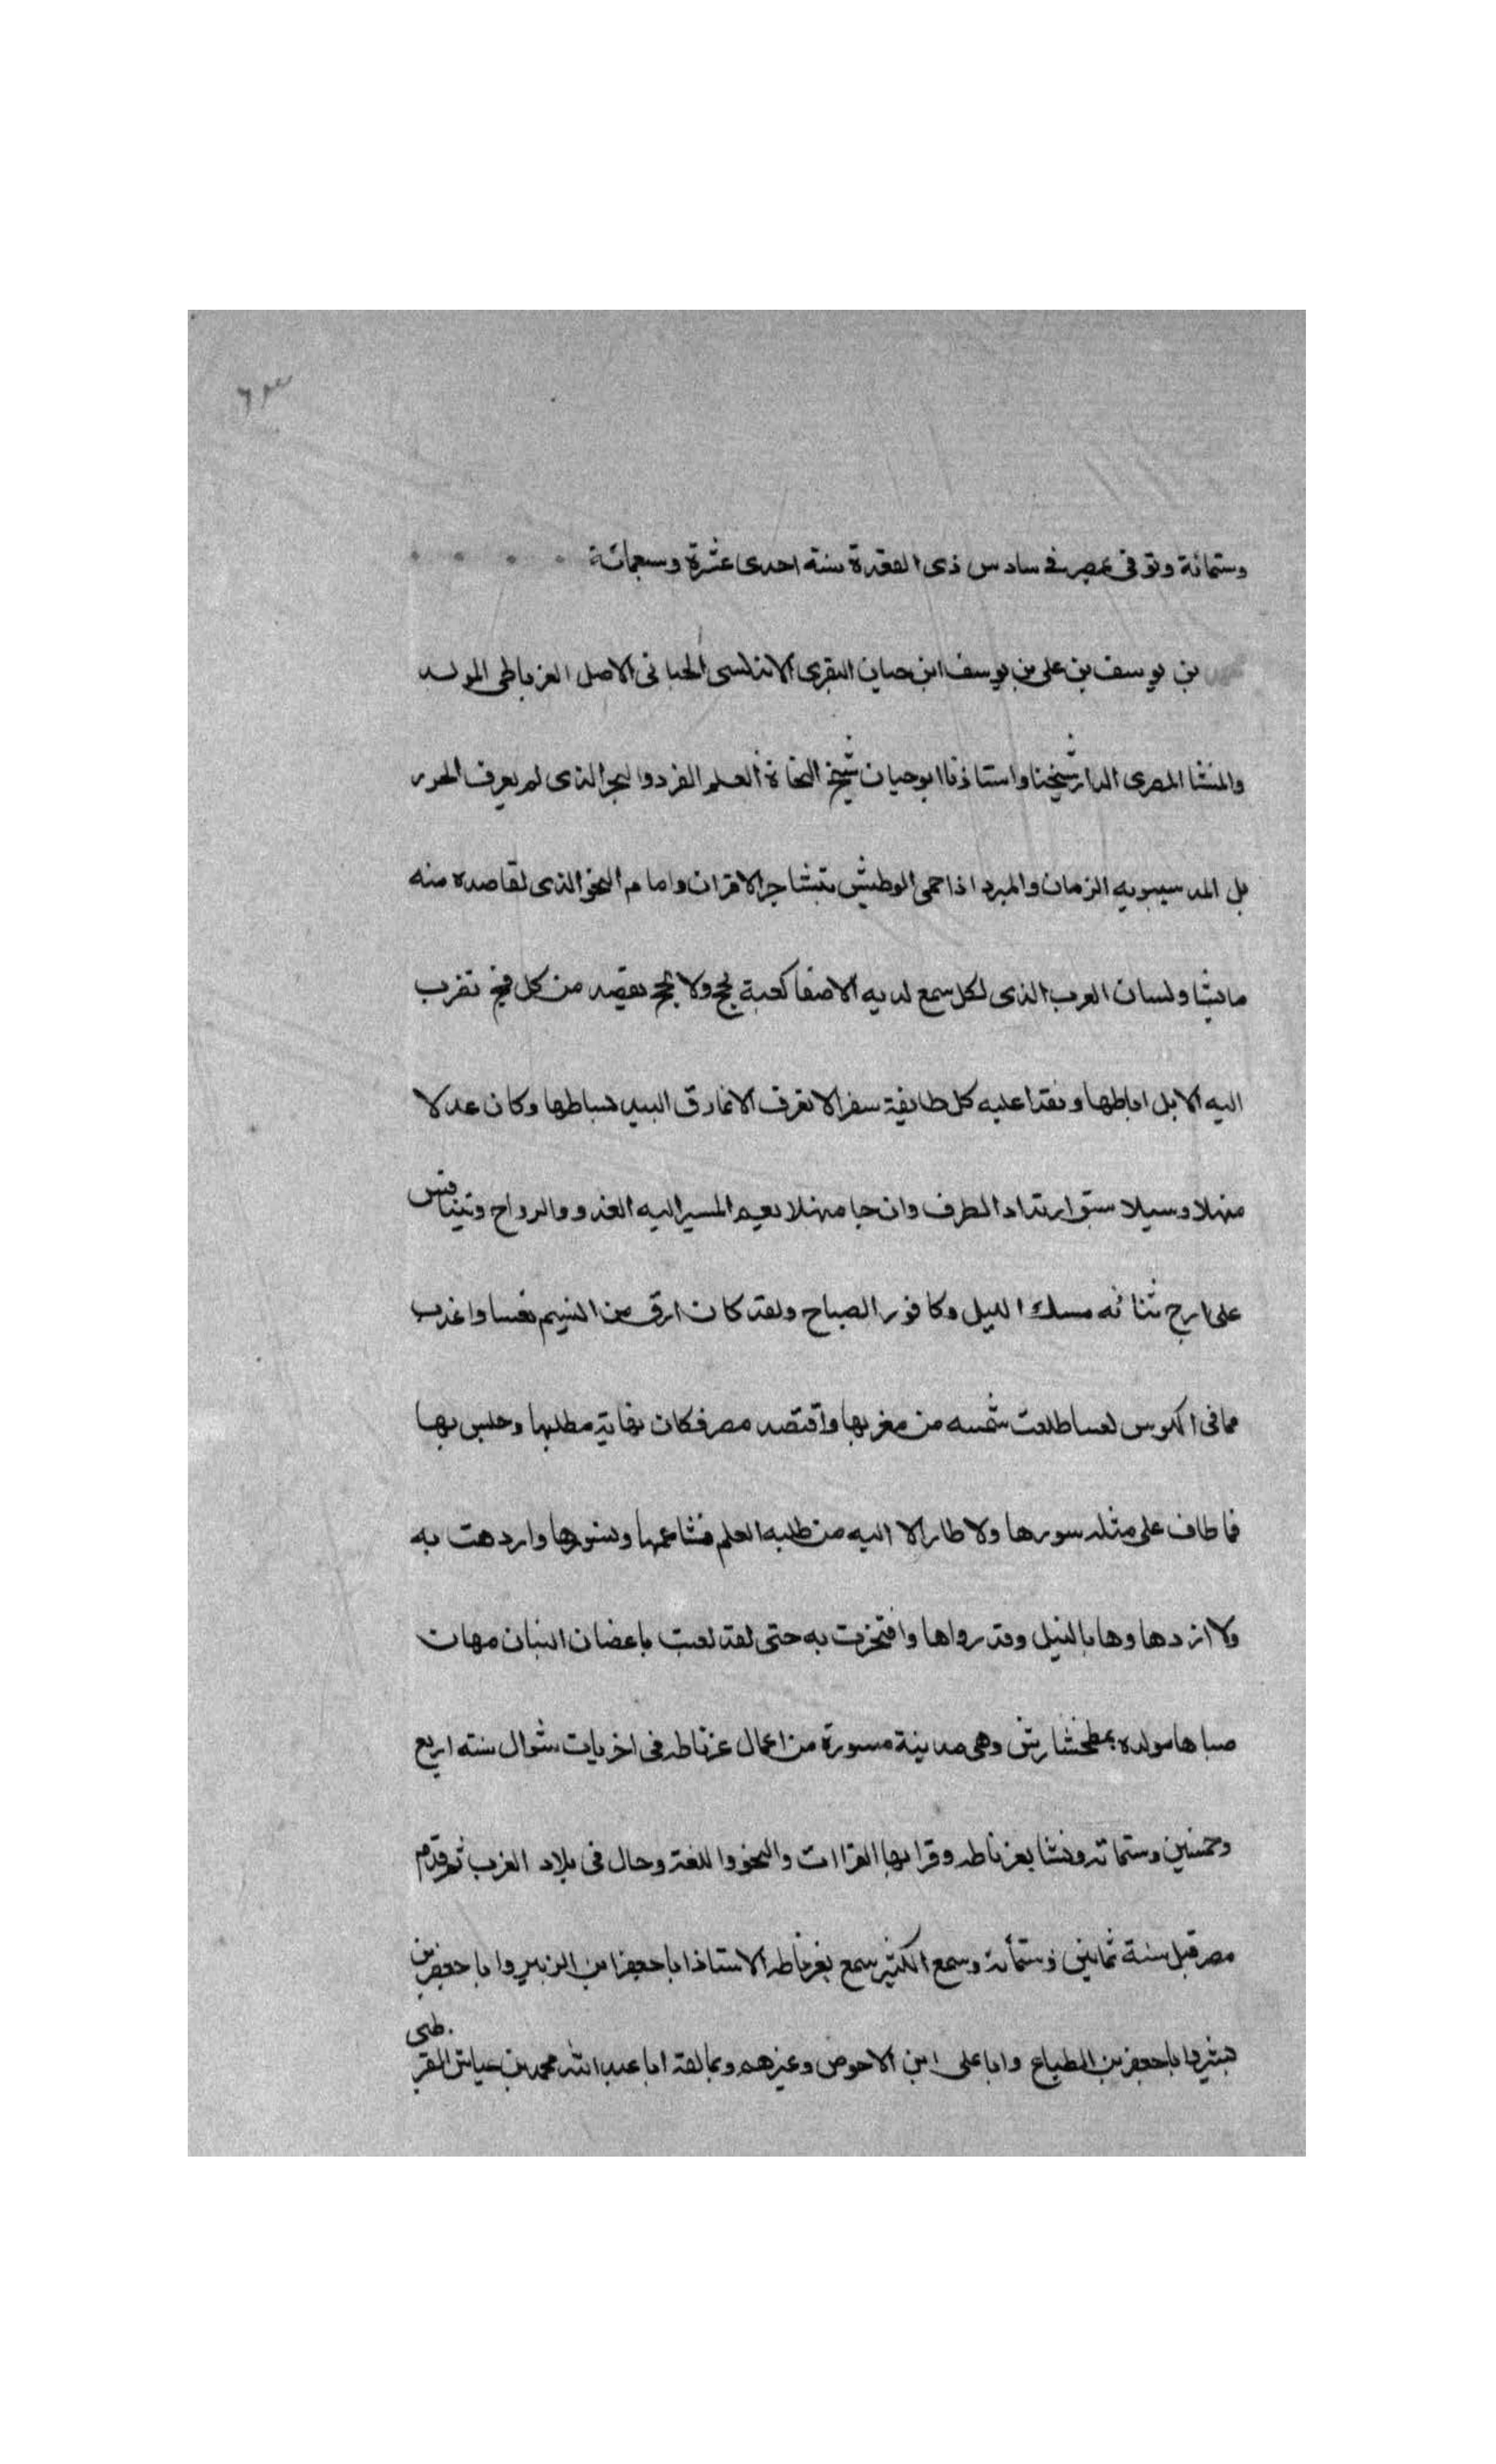 ٦٣
وستمائة وتوفى بمصر فى سادس ذى القعدة سنة احدى عشرة وسبعمائة
بن يوسف بن على بن يوسف ابن حيان النفرى الاندلسى الجيانى الاصل الغرناطى المولد
والمنشا المصرى الدار شيخنا واستاذنا ابو حيان شيخ النحاة العلم الفرد والبحر الذى لم يعرف الجزر
بل المد سيبويه الزمان والمبرد اذا حمى الوطيس بتشاجر الاقران وامام النحو الذى لقاصده منه
ما يشا ولسان العرب الذى لكل سمع لديه الاصغا كعبة تحج ولا تحج ويقصد من كل فج تضرب
اليه الابل اباطها وتفد عليه كل طايفة سفرا لا تعرف الا نمارق البيد بساطها وكان عدلا
منهلا وسيلا سبق ارتداد الطرف وان جا منهلا يعم المسير اليه الغدو والرواح ويتنافس
على ارج ثنائه مسك الليل وكافور الصباح ولقد كان ارق من النسيم نفسا واعذب
مما فى الكوس لعسا طلعت شمسه من مغربها واقتصد مصر فكان نهاية مطلبها وجلس بها
فما طاف على مثله سورها ولا طار الا اليه من طلبة العلم قشاعمها ونسورها وازدهت به
ولا ازدهاوها بالنيل وقد رواها وافتخرت به حتى لقد لعبت باغصان البنان مهات
صباها مولده بمطخشارش وهى مدينة مسورة من اعمال غرناطه فى اخريات شوال سنه اربع
وخمسين وستمائه ونشا بغرناطه وقرا بها القراات والنحو واللغة وجال فى بلاد الغرب ثم قدم
مصر قبل سنة ثمانين وستمائة وسمع الكثير سمع بغرناطه الاستاذ ابا جعفر ابن الزبير وابا جعفر بن
بشير وابا جعفر بن الطباع وابا على ابن الاحوص وغيرهم وبمالقة ابا عبد الله محمد بن عباس القرطبى